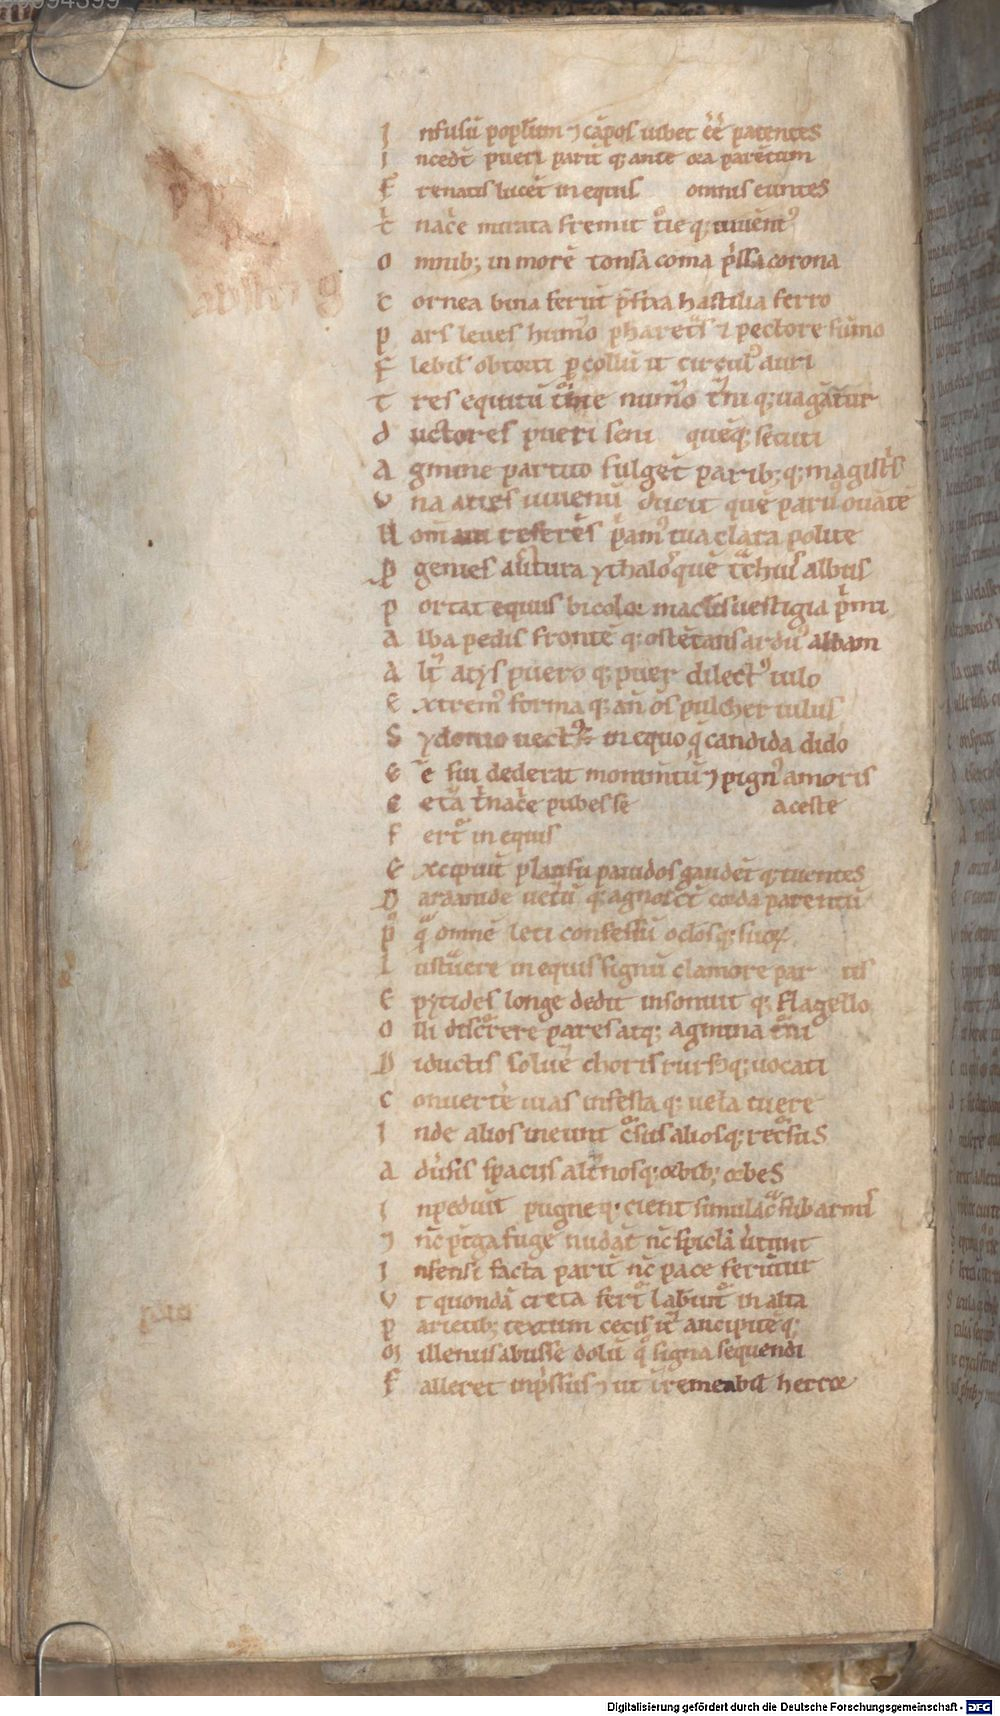 I nfusū popl̄um ⁊ cāpos iubet ēē patentes
I ncedt̄ pueri parit̄ q; ante ora parētum
F renatis lucēt in equis omnis euntes
T nac̄e mirata fremit t̊ieq; iuuent᷒
O mnib; in morē tonsa coma p̄ssa corona
C ornea bina ferūt p̄fixa hastilia ferro
P ars leues humo pharetās ⁊ pectore sūmo
F lebil̄ obtorti p collū it circul᷒ auri
T res equitū t̄me num̄o t̄niq; uagāt̄ur
d uctores pueri seni quēq; secuti
A gmine partito fulgēt parib;q; magist̄s
V na acies iuuenū ducit quē paruū ouātē
N om̄ aui referēs p̄am᷒ tua clara polite
P genies aūctura ythalos quē t̄chius albis
P ortat equus bicolor maculis uestigia p̄mi
A lba pedis frontēq; ostētans ardu᷒ albam
A lt̄ atys pueroq; puer dilect᷒ iulo
E xtrem᷒ formaq; an̄ o̅s pulcher iulus
S ydonio uect᷒ in equo q̄ candida dido
E ē sui dederat monum̄tū ⁊ pign᷒ amoris
C etā t̄nac̄e pubes se aceste
F ert̄ in equis
E xcipiūt plausu pauidos gaudēt q; tuentes
D ardanide uet̄ūq; agnoscūt corda parentū
P q̄ omnē leti confessū oclosq; suoꝝ
L ustauere in equis signū clamore par tis
E pytides longe dedit insonuit q; flagello
O lli discūrere pares atq; agmina t̄ni
D iductis soluē choris rursq; uocati
C onuertē uias infestaq; tela tulere
I nde alios ineunt c̄sus aliosq; rec̄suS
A du̅sis spaciis alt̄nosq; orbib; orbeS
I npediūt pugneq; cient simulac̄ sub armis
⁊ nc̄ t̄ga fuge nudāt nc̄ spicla u̅tunt
I nfensi facta parit̄ nc̄ pace feruntur
V t quondā creta fert̄ labint̄ in alta
P arietib; textum cecis it̄ ancipitēq;
M ille uiis abuisse dolū q̄ signa sequendi
F alleret inp̄ssus ⁊ ut irremeabil herror
Digitalisierung gefördert durch die Deutsche Forschungsgemeinschaft - DFG